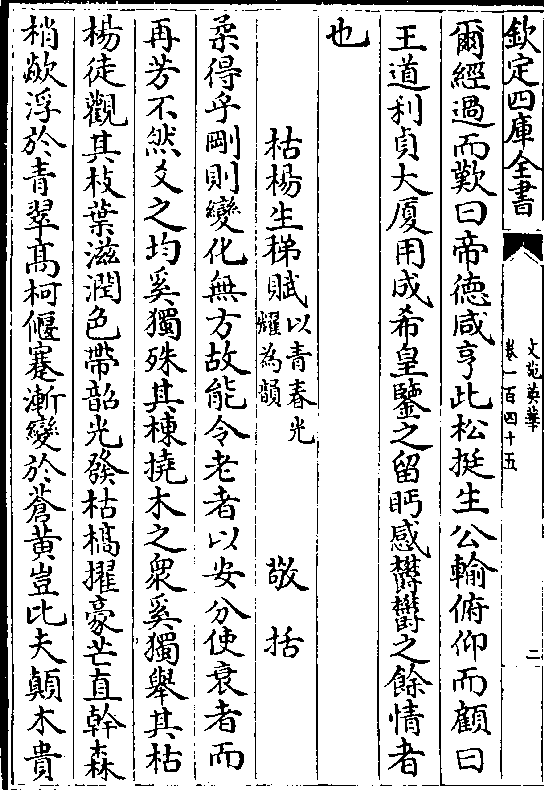 欽定四庫全書
文苑英華
卷一百四十五
二
爾經過而歎曰帝德咸亨此松挺生公輸俯仰而顧曰
王道利貞大厦用成希皇鑒之留眄感欝欝之餘情者
也
枯楊生稊賦以青春光
耀為韻
敬括
柔得乎剛則變化無方故能令老者以安分使衰者而
再芳不然爻之均奚獨殊其棟撓木之衆奚獨舉其枯
楊徒觀其枝葉滋潤色帶韶光發枯槁擢豪芒直幹森
梢歘浮於青翠髙柯偃蹇漸變於蒼黄豈比夫顛木貴